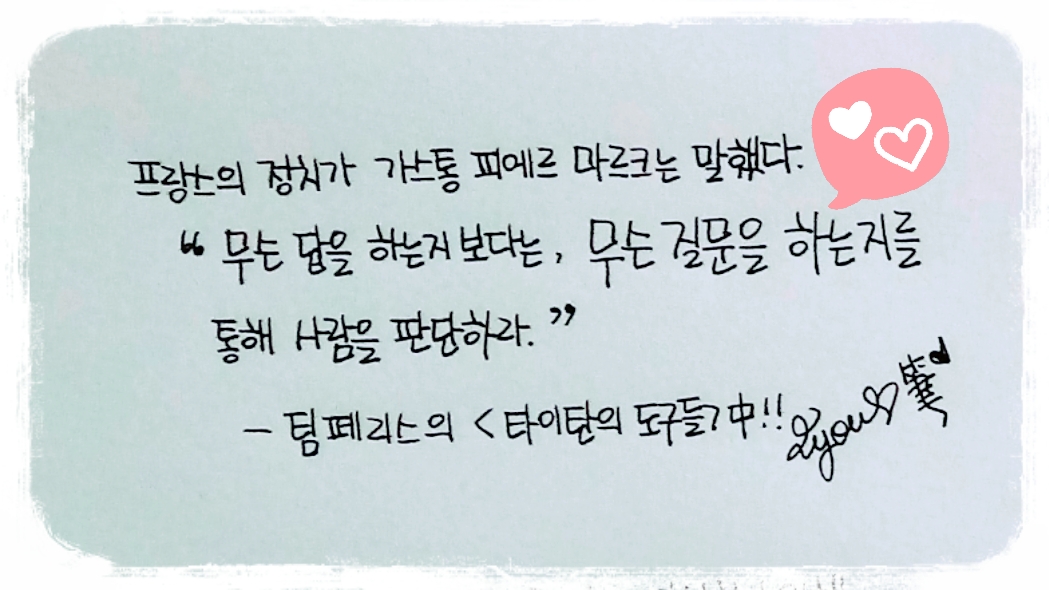 프랑스의 정치가 가스통 피에르 마르크는 말했다.
“ 무슨 답을 하는지 보다는, 무슨 질문을 하는지를
통해 사람을 판단하라.”
- 팀페리스의 <타이탄의 도구들> 中!! 2you♡